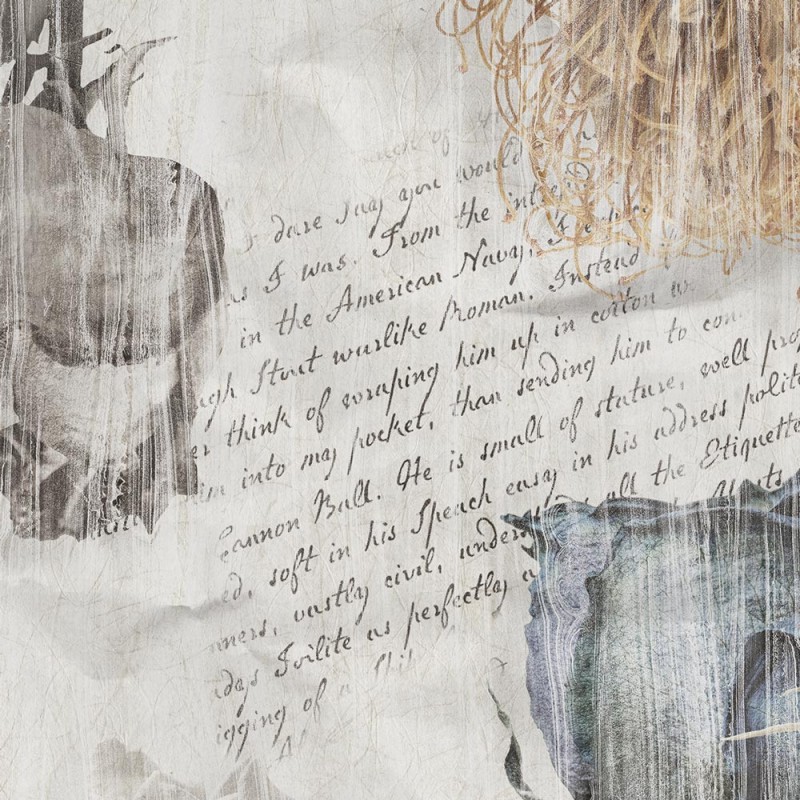 I dare say you would
as I was. From the intre
in the American Navy, I
ugh Stout warlike Roman. Instead
er think of wraping him up in cotton w
im into my pocket, than sending him to con
Cannon Ball. He is small of stature, well pro
ed, soft in his Speach easy in his address polite
nners, vastly civil, under all the Etiquette
days Toilite as perfectly a
igging of a Shi